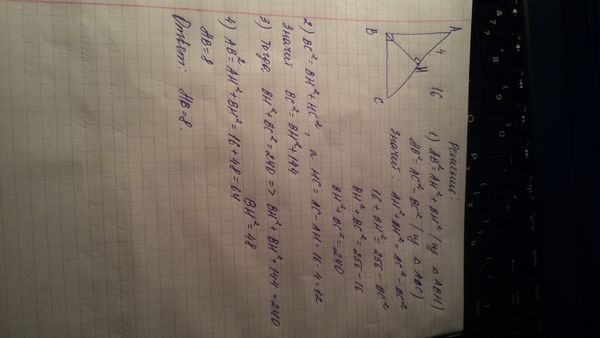 Решение:
1) AB²=AH²+BH² (из △ABH)
AB²=AC²-BC² (из △ABC)
Значит: AH²+BH²=AC²-BC²
16+BH²=256-BC²
BH²+BC²=256-16
BH²+BC²=240
A
4
H
B
C
16
2) BC²=BH²+HC², а HC=AC-AH=16-4=12
Значит BC²=BH²+144
3) Тогда BH²+BC²=240 => BH²+BH²+144=240
BH²=48
4) AB²=AH²+BH²=16+48=64
AB=8
Ответ: AB=8.